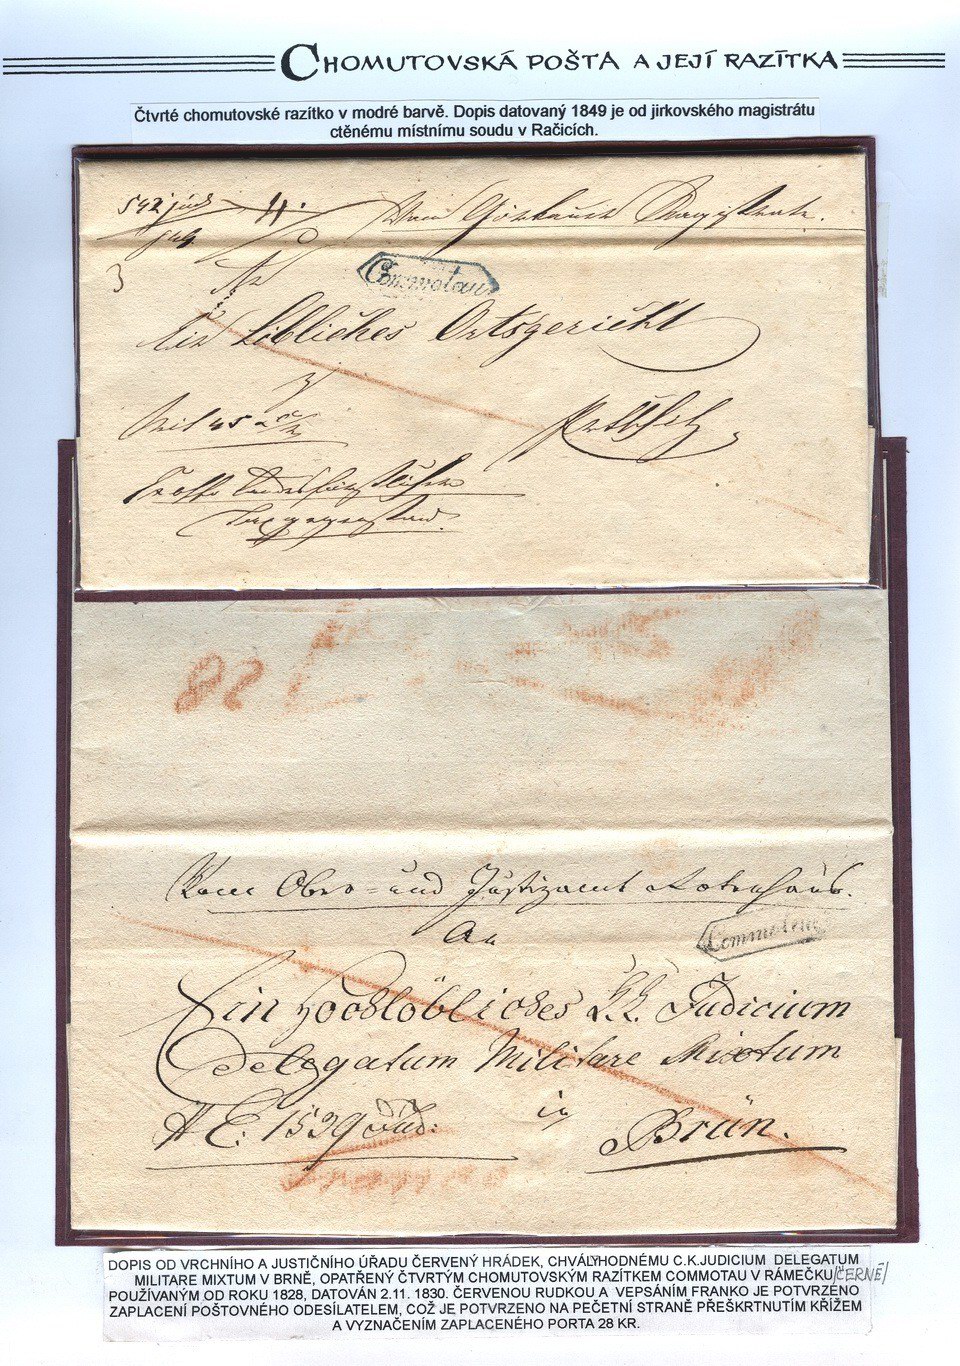 CHOMUTOVSKÁ POŠTA A JEJÍ RAZÍTKA
Čtvrté chomutovské razítko v modré barvě. Dopis datovaný 1849 je od jirkovského magistrátu
ctěnému místnímu soudu v Račicích.
Vom Görkauer Magistrate.
Commotau
An
Ein Löbliches Ortsgericht
Vom Ober= und Justizamt Rotenhaus.
An
Commotau
Ein Hochlöbliches k.k. Judicium
Delegatum Militare Mixtum
NE: 1539 Jud: in Brün.
DOPIS OD VRCHNÍHO A JUSTIČNÍHO ÚŘADU ČERVENÝ HRÁDEK, CHVÁLYHODNÉMU C.K.JUDICIUM DELEGATUM
MILITARE MIXTUM V BRNĚ, OPATŘENÝ ČTVRTÝM CHOMUTOVSKÝM RAZÍTKEM COMMOTAU V RÁMEČKU/ČERNÉ/
POUŽÍVANÝM OD ROKU 1828, DATOVÁN 2.11. 1830. ČERVENOU RUDKOU A VEPSÁNÍM FRANKO JE POTVRZENO
ZAPLACENÍ POŠTOVNÉHO ODESÍLATELEM, COŽ JE POTVRZENO NA PEČETNÍ STRANĚ PŘEŠKRTNUTÍM KŘÍŽEM
A VYZNAČENÍM ZAPLACENÉHO PORTA 28 KR.